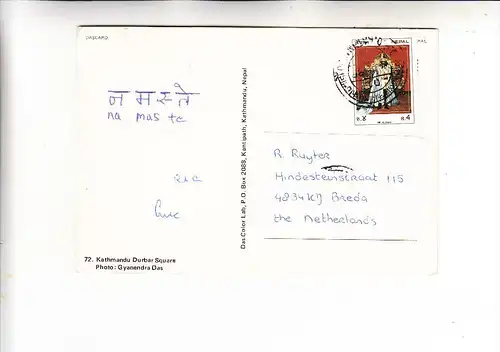 DASCARD
NEPAL
रु. ४
R. 4
न म स्ते
na mas te
Das Color Lab, P.O. Box 2088, Kantipath, Kathmandu, Nepal
R. Ruyter
Hindesteinstraat 115
4834 KJ Breda
the Netherlands
72. Kathmandu Durbar Square
Photo: Gyanendra Das